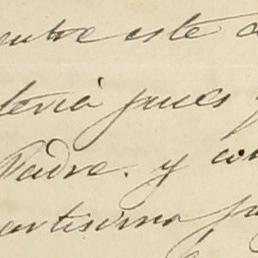 entre este
teria pues
Padre. y con
artisima